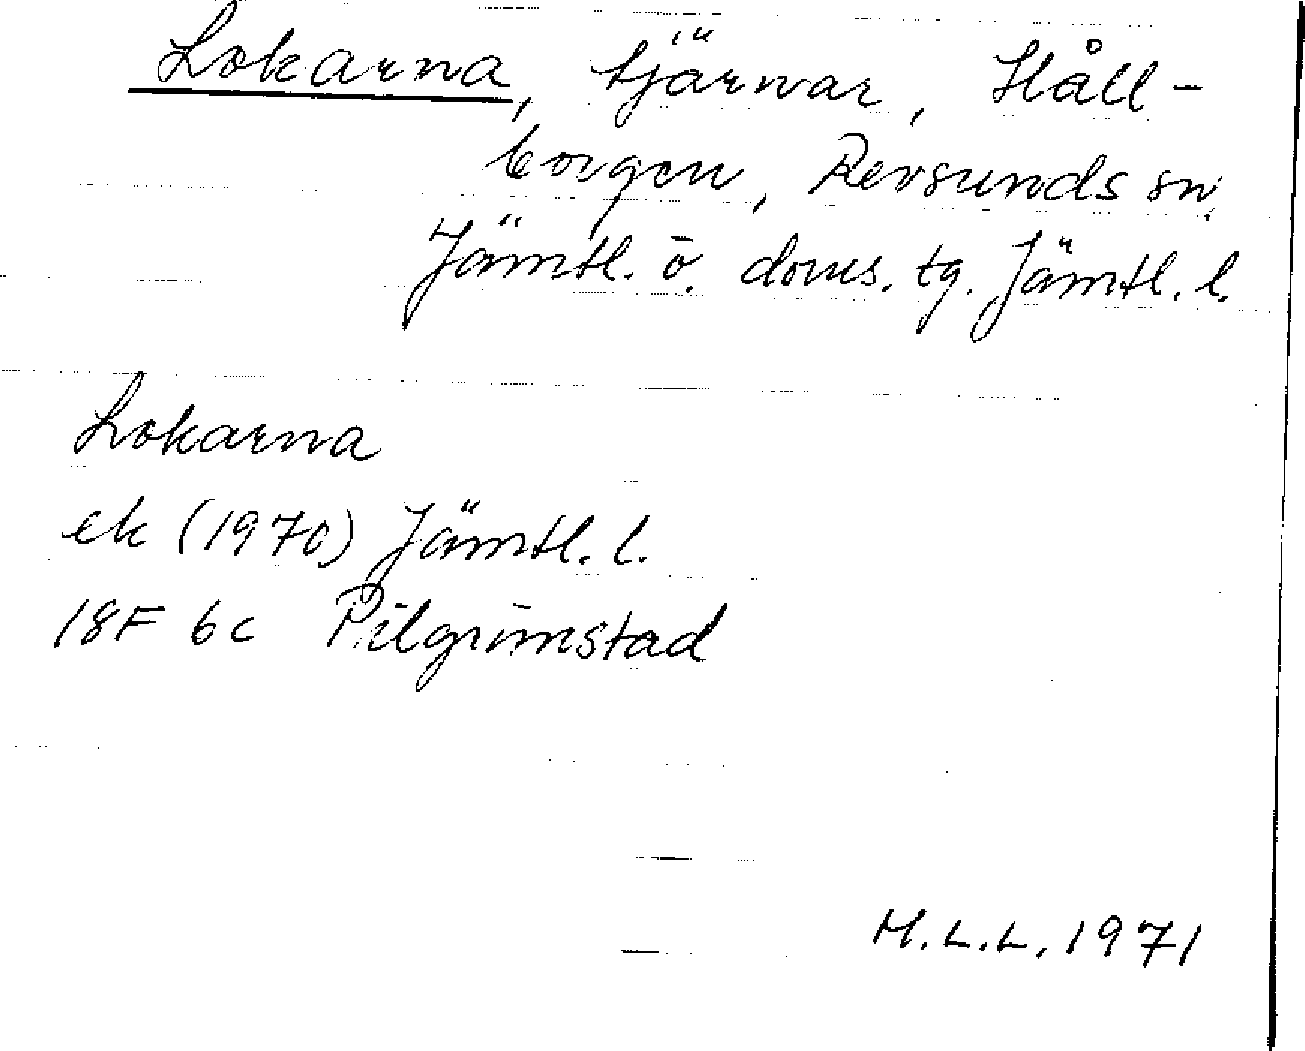 Lokarna, tjärnar, Håll-
borgen, Revsunds sn,
Jämtl. ö. doms. tg. Jämtl. l.
Lokarna
ek (1970) Jämtl. l.
18F 6c Pilgrimstad
M.L.L. 1971